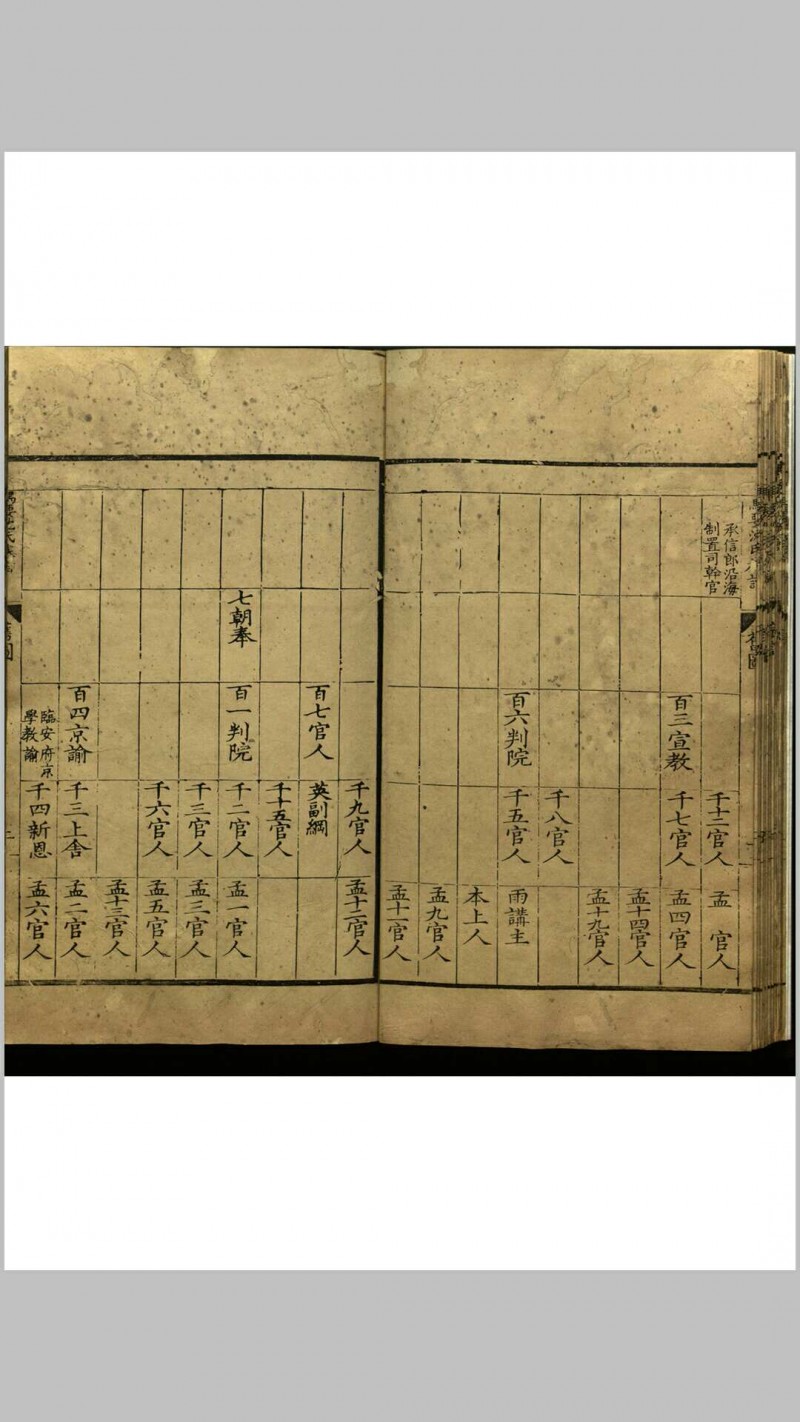 承信郎沿海
制置司幹官
千十二官人
孟　官人
百三宣教
千七官人
孟四官人
孟十四官人
孟十九官人
千八官人
百六判院
千五官人
雨講主
本上人
孟九官人
孟十一官人
千九官人
孟十二官人
百七官人
英副綱
千十五官人
七朝奉
百一判院
千二官人
孟一官人
千三官人
孟三官人
千六官人
孟五官人
孟十三官人
百四京諭
千三上舍
孟二官人
臨安府京
學教諭
千四新恩
孟六官人